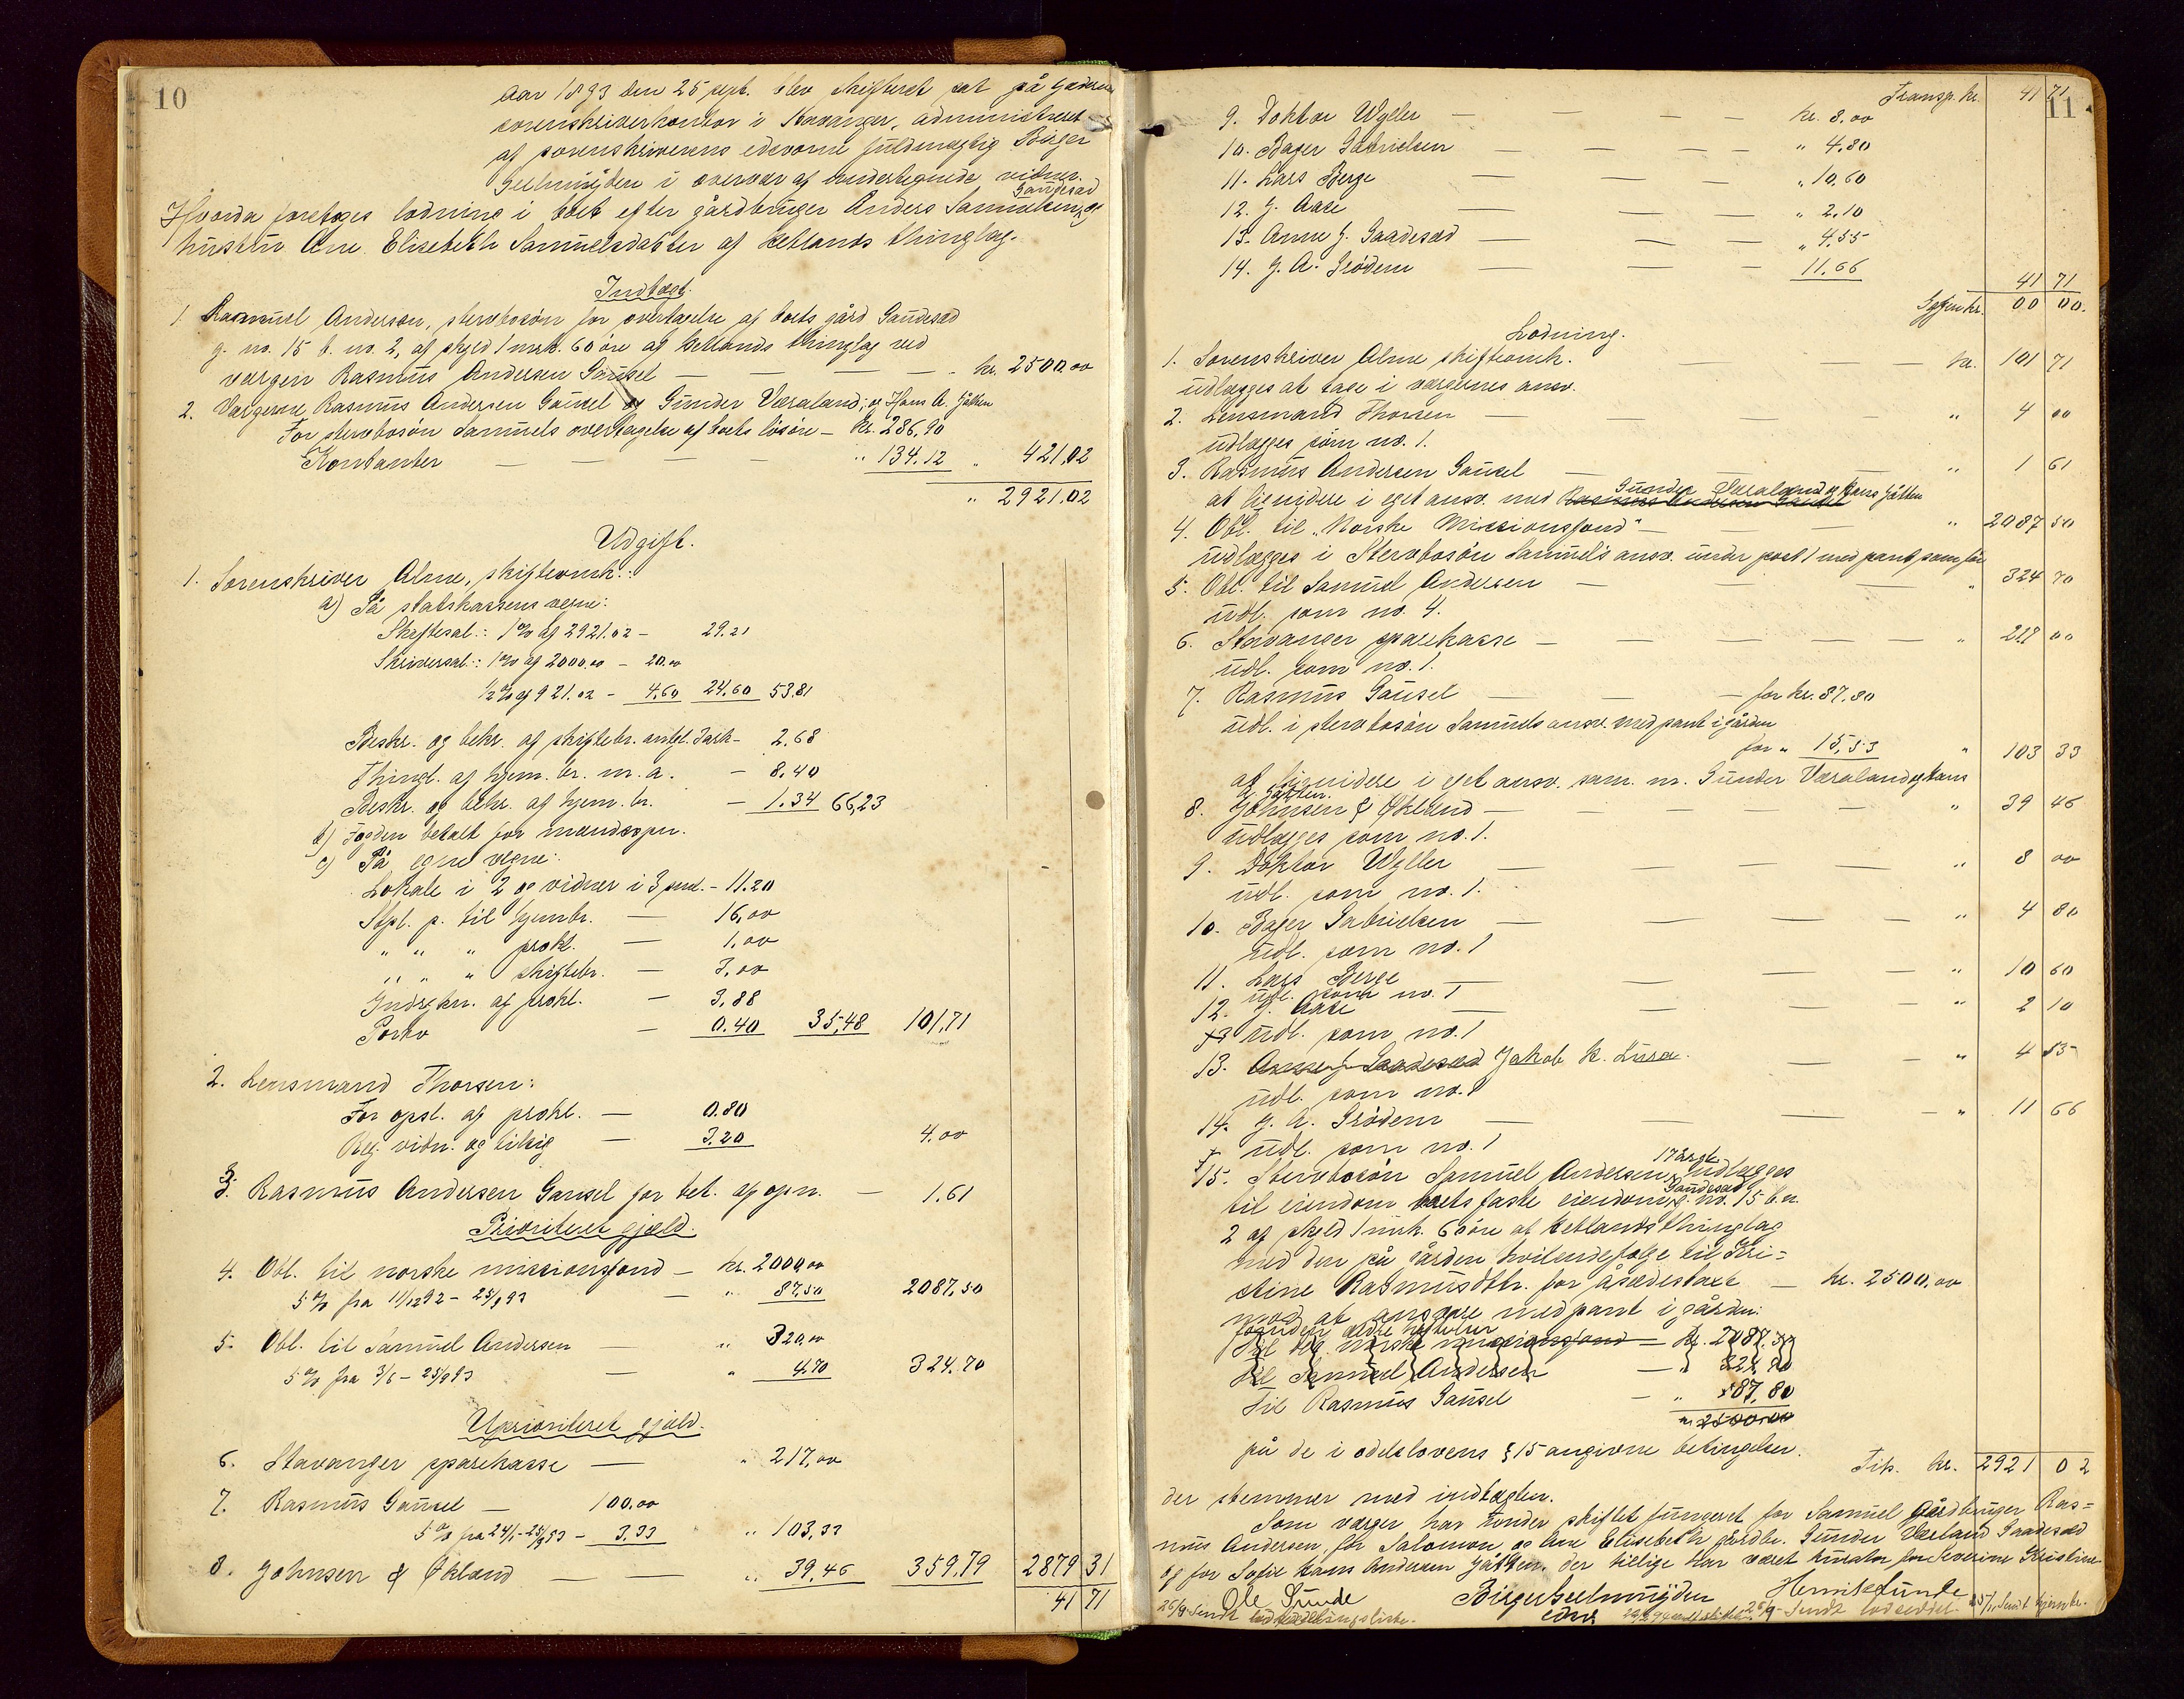 10
Aar 1893 den 25 sept. blev skifteret sat på Jæderens
sorenskriverkontor i Stavanger, administreret
af sorenskriverens edsvorne fuldmægtig Birger
Geelmuyden i overvær af undertegnede vidner.
Hvorda foretoges lodning i boet efter gårdbruger Anders Samuelsen Gaudesæd og
hustru Ane Elisebeth Samuelsdatter af Hetlands thinglag.
Indtægt.
1 Samuel Andersen, stervbosøn for overtagelse af boets gård Gaudesæd
g. no. 15 b. no. 2, af skyld 1 mrk. 60 øre af Hetlands thinglag ved
værgen Rasmus Andersen Gausel — — — — kr. 2500.00
2. Værgerne Rasmus Andersen Gausel og Gunder Væraland; og Hans A. Jåtten
For stervbosøn Samuels overtagelse af boets løsøre — kr. 286,90
Kontanter — — — " 134.12 " 421,02
" 2921.02
Udgift.
1. Sorenskriver Alme, skifteomk.:
a) På statskassens vegne:
Skiftesal.: 1% af 2921.02 — 29.21
Skriversal.: 1% af 2000.00 — 20.00
½% af 921.02 — 4.60 24.60 53.81
Beskr. og bekr. af skiftebr. anlgl. Task — 2.68
Thingl. af hjem. br. m. a. — 8.40
Beskr. og bekr. af hjem. br. — 1.34 66,23
b) Fogden betalt for mandsopn.
c) På egne vegne:
Lokale i 2 og vidner i 3 — 11.20
Stpl. p. til hjembr. — 16,00
" " " prokl. — 1.00
" " " skiftebr. — 3,00
Indrykn. af prokl. — 3.88
Porto — 0.40 35,48 101,71
2. Lensmand Thorsen:
For opsl. af prokl. — 0.80
Reg. vidn. og tilsig — 3.20 4.00
3. Rasmus Andersen Gausel for bet. af opn. — 1.61
Prioriteret gjæld.
4. Obl. til norske missionsfond — kr. 2000,00
5% fra 11/12 92 – 25/9 93 — " 87,50 2087,50
5. Obl. til Samuel Andersen — " 320,00
5% fra 3/6 – 25/9 93 — " 4.70 324.70
Uprioriteret gjæld.
6. Stavanger sparekasse — " 217,00
7. Rasmus Gausel — 100.00
5% fra 24/1 – 25/9 93 — 3,33 " 103,33
8. Johnsen & Økland — — " 39,46 359,79 2879 31
41 71
11
Transp. kr. 41 71
9. Doktor Wyller — — — — kr. 8.00
10. Bager Gabrielsen — — — — " 4.80
11. Lars Berge — — — " 10,60
12. J. Aase — — — " 2.10
13. Anne J. Gaadesæd — — — " 4.55
14. G. A. Grødem — — — 11.66
41 71
Igjen kr. 00 00.
Lodning.
1. Sorenskriver Alme skifteomk. — — kr. 101 71
udlægges at tage i værgernes ansv.
2. Lensmand Thorsen — — — — " 4 00
udlægges som no. 1.
3. Rasmus Andersen Gausel — — — " 1 61
at likvidere i eget ansv. med Rasmus Andersen Gausel Gunder Væraland og Hans Jåtten
4. Obl. til "Norske Missionsfond" — — " 2087 50
udlægges i Stervbosøn Samuels ansv. under post 1 med pant som før
5. Obl. til Samuel Andersen — — " 324 70
udl. som no. 4.
6. Stavanger sparekasse — — — — " 217 00
udl. som no. 1.
7. Rasmus Gausel — — — for kr. 87.80
udl. i stervbosøn Samuels ansv. med pant i gården
for " 15,53 " 103 33
at likvidere i eget ansv. sam. m. Gunder Væraland og Hans
A. Jåtten.
8. Johnsen & Økland — — — " 39 46
udlægges som no. 1.
9. Doktor Wyller — — — — " 8 00
udl. som no. 1.
10. Bager Gabrielsen — — — — " 4 80
udl. som no. 1
11. Lars Berge — — — " 10 60
udl. som no. 1
12. J. Aase — — — — " 2 10
udl. som no. 1
13. Anne J. Gaadesæd Jakob K. Lura. — — " 4 55
udl. som no. 1
14. G. A. Grødem — — — — " 11 66
udl. som no. 1
15. Stervbosøn Samuel Andersen, 17 årgl. udlægges
til eiendom boets faste eiendom, Gaudesæd g. no. 15 b. n.
2 af skyld 1 mrk. 60 øre af Hetlands thinglag
med den på gården hvilende følge til Kri=
stine Rasmusdtr. for åsædestaxt — kr. 2500,00
mod at ansvare med pant i gården:
foruden ældre heftelser
Til det norske missionsfond — kr. 2087.50
Til Samuel Andersen — " 324,70
Til Rasmus Gausel — " 87,80
kr. 2500,00
på de i odelslovens § 15 angivne betingelser.
Tils. kr. 2921 02
der stemmer med indtægten.
Som værger har under skiftet fungeret for Samuel gårdbruger Ras=
mus Andersen, for Salomon og Ane Elisebeth gårdbr. Gunder Værland Gaadesæd
og for Sofie Hans Andersen Jåtten, der tillige har været kurator for Severine Kristine
Ole Sunde Birger Geelmuyden Henrik Sunde
edsv.